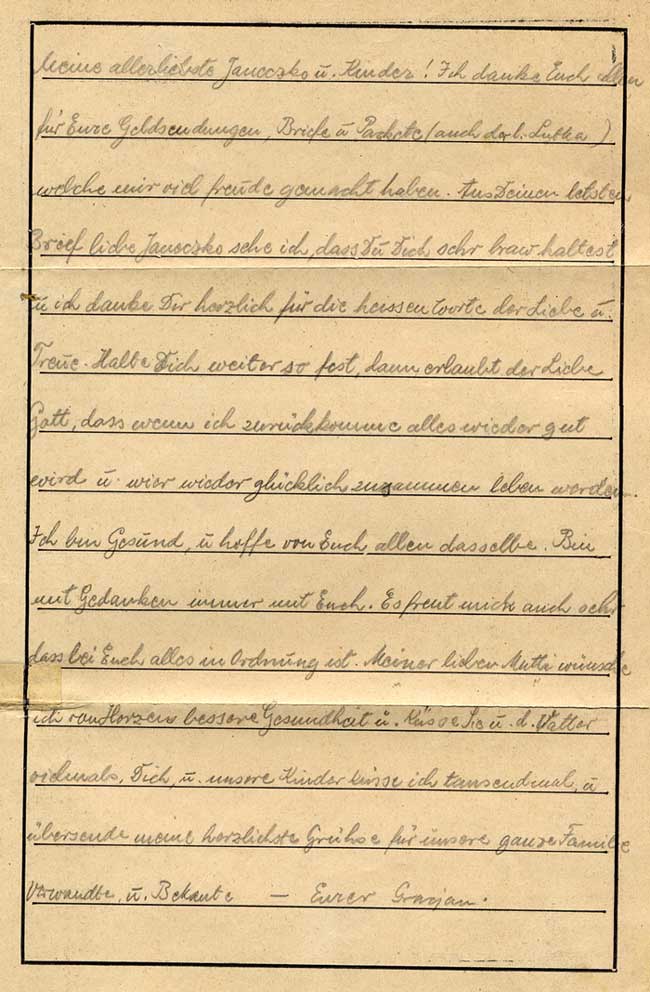 Meine allerliebste Janeczko u. Kinder! Ich danke Euch allen
für Eure Geldsendungen, Briefe u Packete (auch der l. Lutka)
welche mir viel freude gemacht haben. Aus Deinen letzten
Brief liebe Janeczko sehe ich, dass Du Dich sehr braw haltest
u ich danke Dir herzlich für die heissen Worte der Liebe u.
Treue. Halte Dich weiter so fest, dann erlaubt der Liebe
Gott, dass wenn ich zurückkomme alles wieder gut
wird u. wier wieder glücklich zusammen leben werden.
Ich bin Gesund, u hoffe von Euch allen dasselbe. Bin
mit Gedanken immer mit Euch. Es freut mich auch sehr
dass bei Euch alles in Ordnung ist. Meiner lieben Mutti wünsche
ich von Herzen bessere Gesundheit u. Küsse Sie u. d. Vatter
vielmals, Dich, u. unsere Kinder küsse ich tausendmal, u
übersende meine herzlichste Grühse für unsere ganze Familie
Verwandte, u. Bekante — Eurer Gracjan.